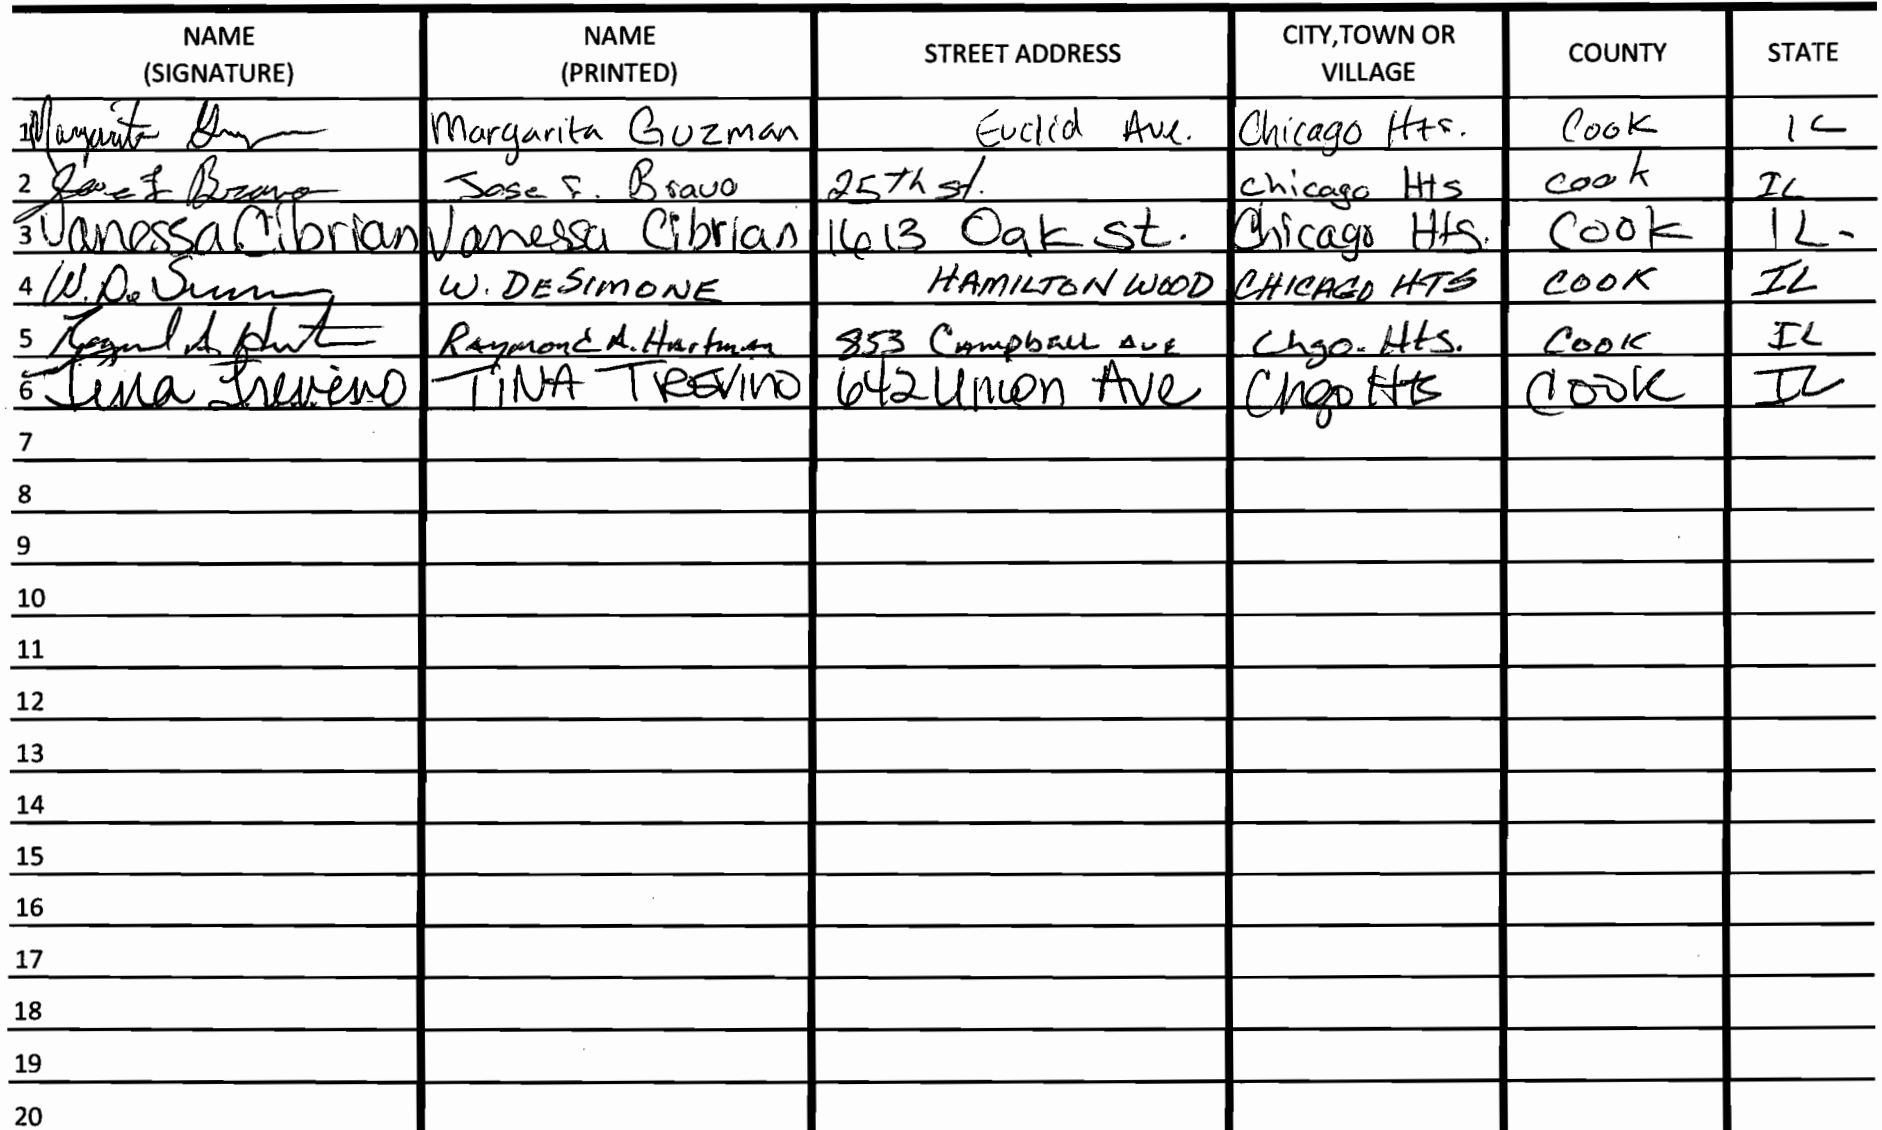 NAME (SIGNATURE) NAME (PRINTED) STREET ADDRESS CITY,TOWN OR VILLAGE COUNTY STATE
1 Margarita Margarita Guzman Euclid Ave. Chicago Hts. Cook IL
2 Jose F Bravo Jose F. Bravo 25Th st. chicago Hts cook IL
3 Vanessa Cibrian Vanessa Cibrian 1613 Oak st. Chicago Hts. Cook IL.
4 W. De W. DESIMONE HAMILTON WOOD CHICAGO HTS COOK IL
5 Raymond A. Hartman 853 Campbell Ave Chgo. Hts. Cook IL
6 Tina Trevino TINA TREVINO 642 Union Ave Chgo Hts Cook IL
7
8
9
10
11
12
13
14
15
16
17
18
19
20